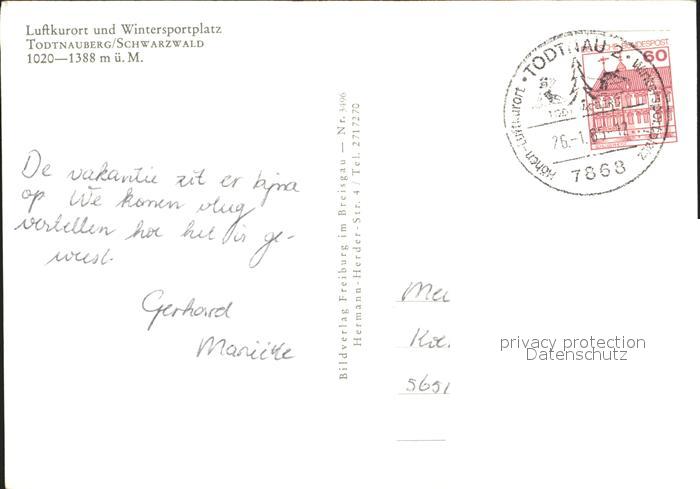 Luftkurort und Wintersportplatz
TODTNAUBERG/SCHWARZWALD
1020—1388 m ü. M.
De vakantie zit er bijna
op We komen vlug
vertellen hoe het is ge-
weest.
Gerhard
Marieke
Bildverlag Freiburg im Breisgau — Nr. 3496
Hermann-Herder-Str. 4 / Tel. 2717270
DEUTSCHE BUNDESPOST
60
TODTNAU 2
Höhen-Luftkurort · Wintersportplatz
26.-1.85-12
7868
5651
privacy protection
Datenschutz